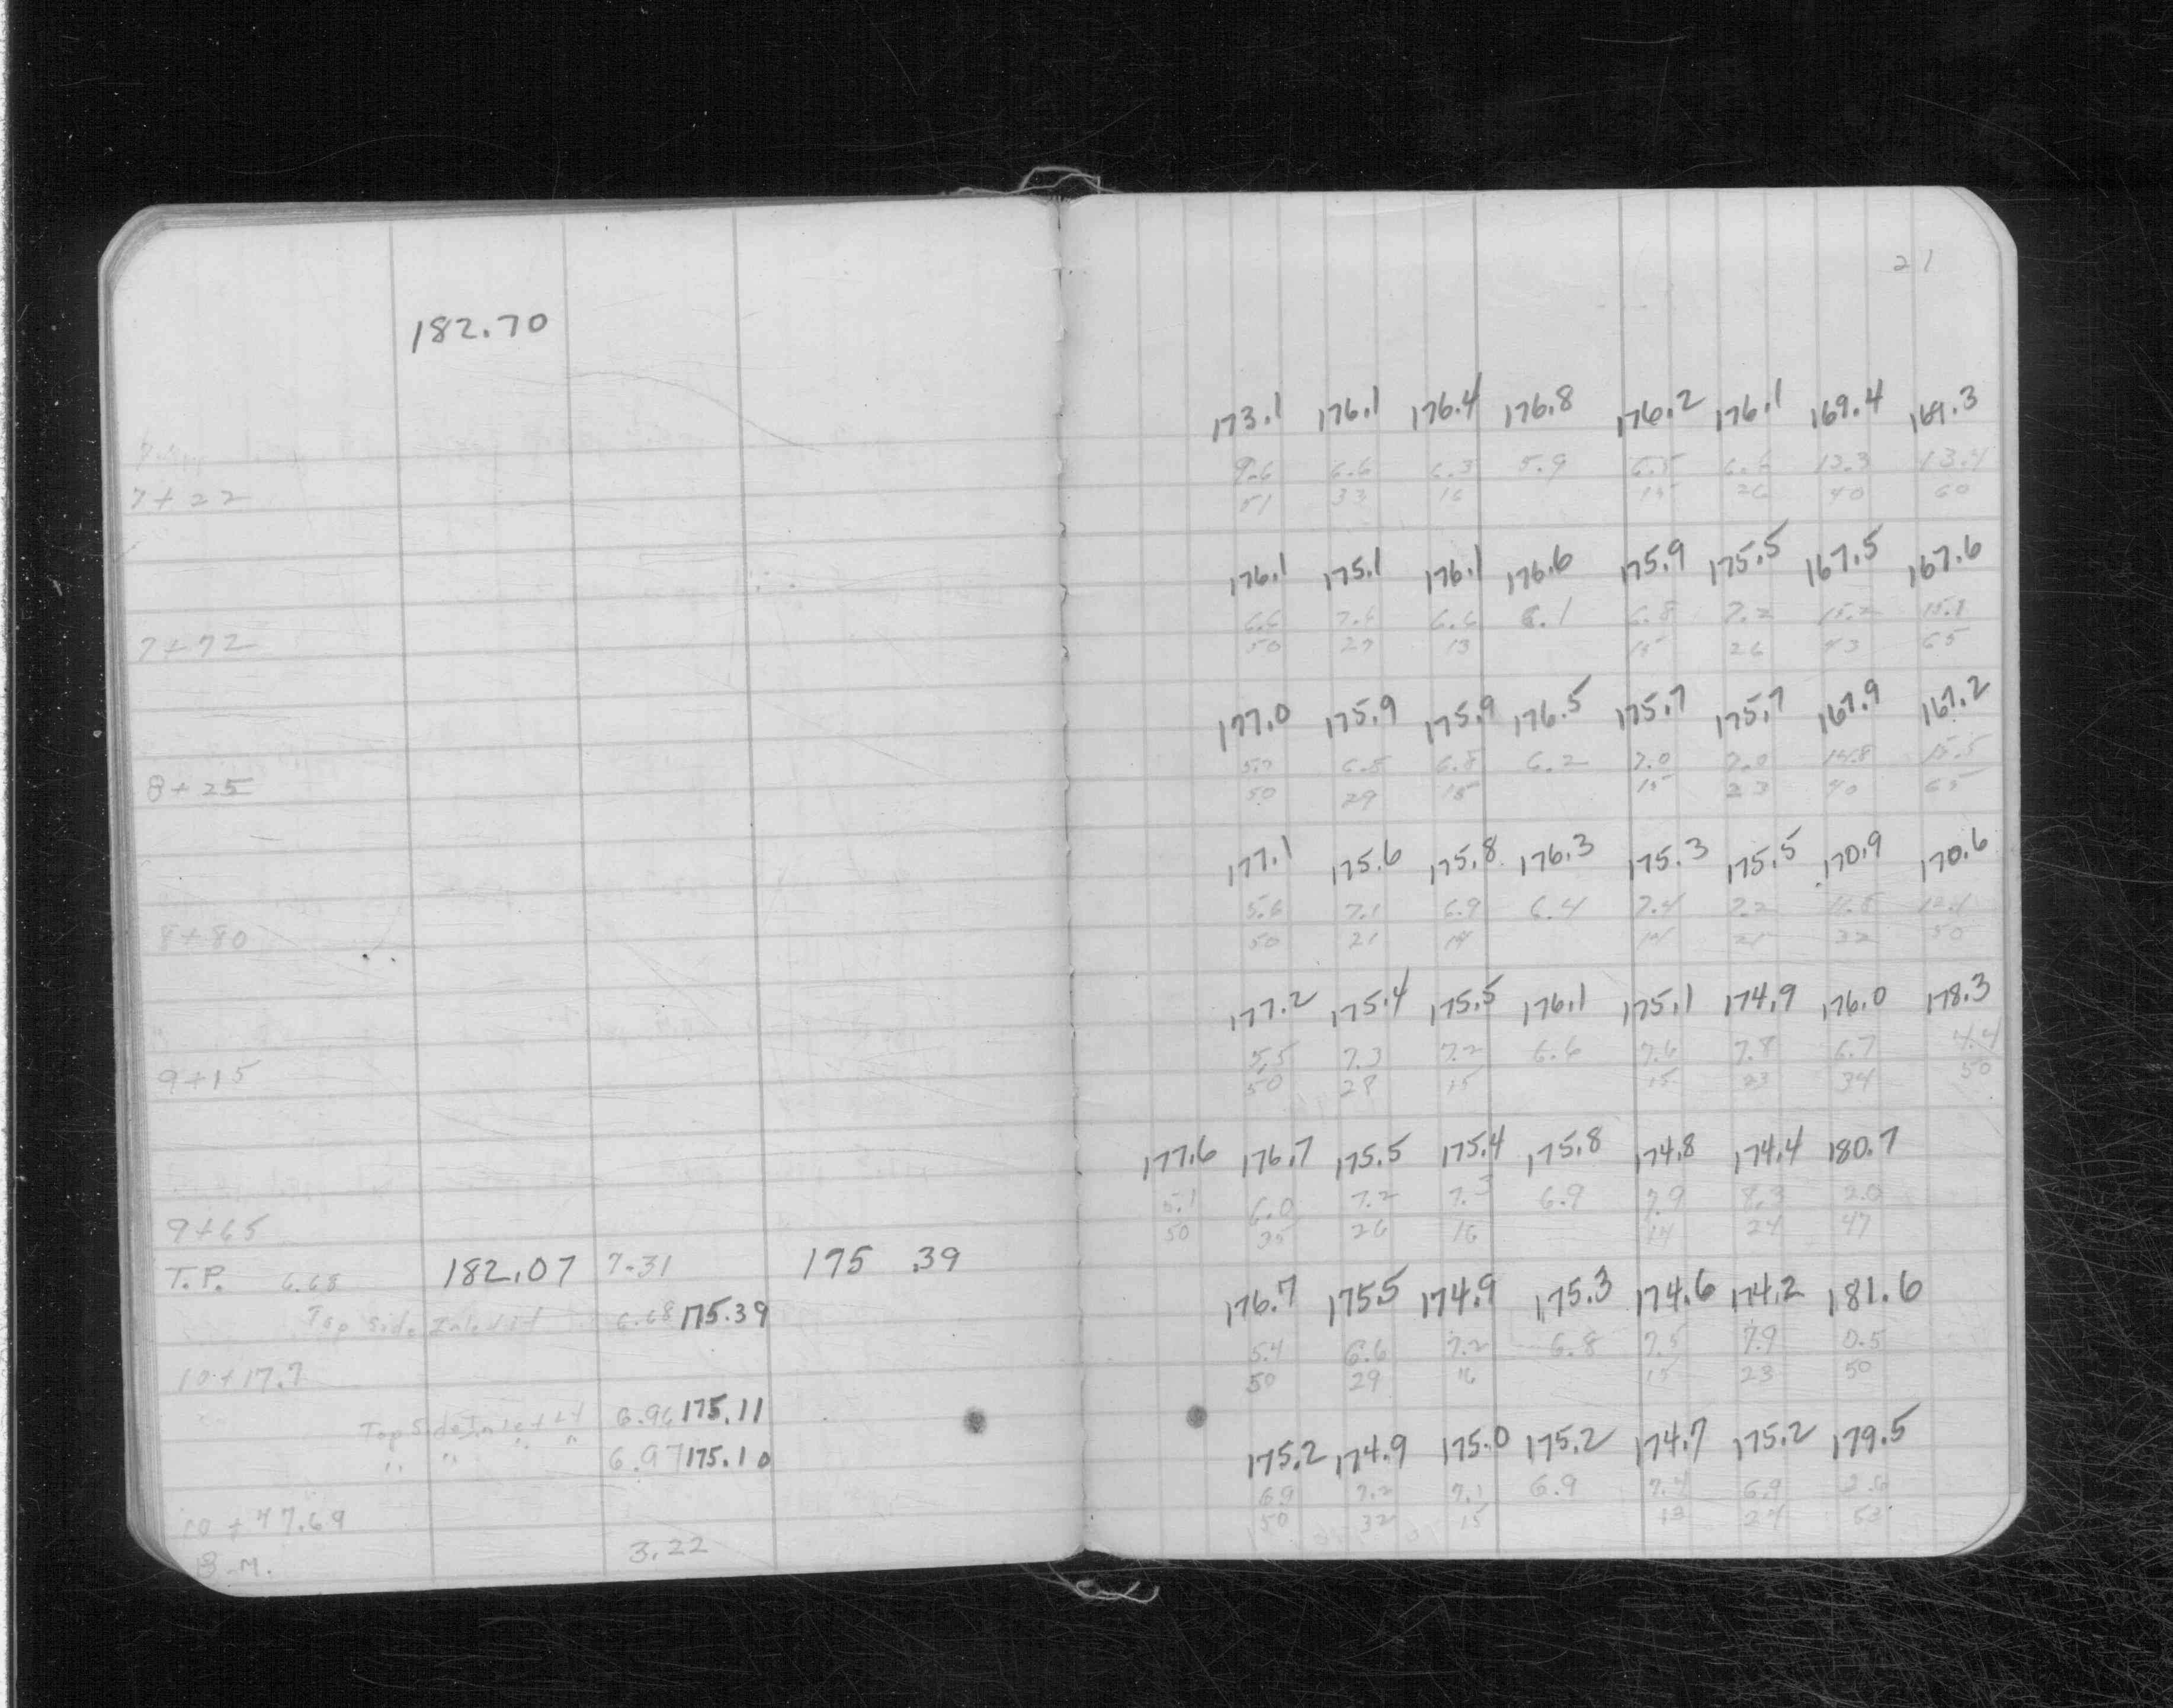 21
182.70
173.1 176.1 176.4 176.8 176.2 176.1 169.4 169.3
9.6 6.6 6.3 5.9 6.5 6.6 13.3 13.4
7+22 51 33 16 15 26 40 60
176.1 175.1 176.1 176.6 175.9 175.5 167.5 167.6
6.6 7.6 6.6 6.1 6.8 7.2 15.2 15.1
7+72 50 27 13 15 26 43 65
177.0 175.9 175.9 176.5 175.7 175.7 167.9 167.2
5.7 6.8 6.8 6.2 7.0 7.0 14.8 15.5
8+25 50 29 15 15 23 40 65
177.1 175.6 175.8 176.3 175.3 175.5 170.9 170.6
5.6 7.1 6.9 6.4 7.4 7.2 11.8 12.1
8+80 50 21 14 14 21 32 50
177.2 175.4 175.5 176.1 175.1 174.9 176.0 178.3
5.5 7.3 7.2 6.6 7.6 7.8 6.7 4.4
9+15 50 28 15 15 23 34 50
177.6 176.7 175.5 175.4 175.8 174.8 174.4 180.7
5.1 6.0 7.2 7.3 6.9 7.9 8.3 2.0
9+65 50 35 26 16 14 24 47
T.P. 6.68 182.07 7.31 175 .39
176.7 175.5 174.9 175.3 174.6 174.2 181.6
Top Side Inlet 6.68 175.39
5.4 6.6 7.2 6.8 7.5 7.9 0.5
10+17.7 50 29 16 15 23 50
Top Side Inlet 6.96 175.11
" " " " 6.97 175.10
175.2 174.9 175.0 175.2 174.7 175.2 179.5
6.9 7.2 7.1 6.9 7.4 6.9 2.6
10+47.69 50 32 15 13 24 53
B.M. 3.22